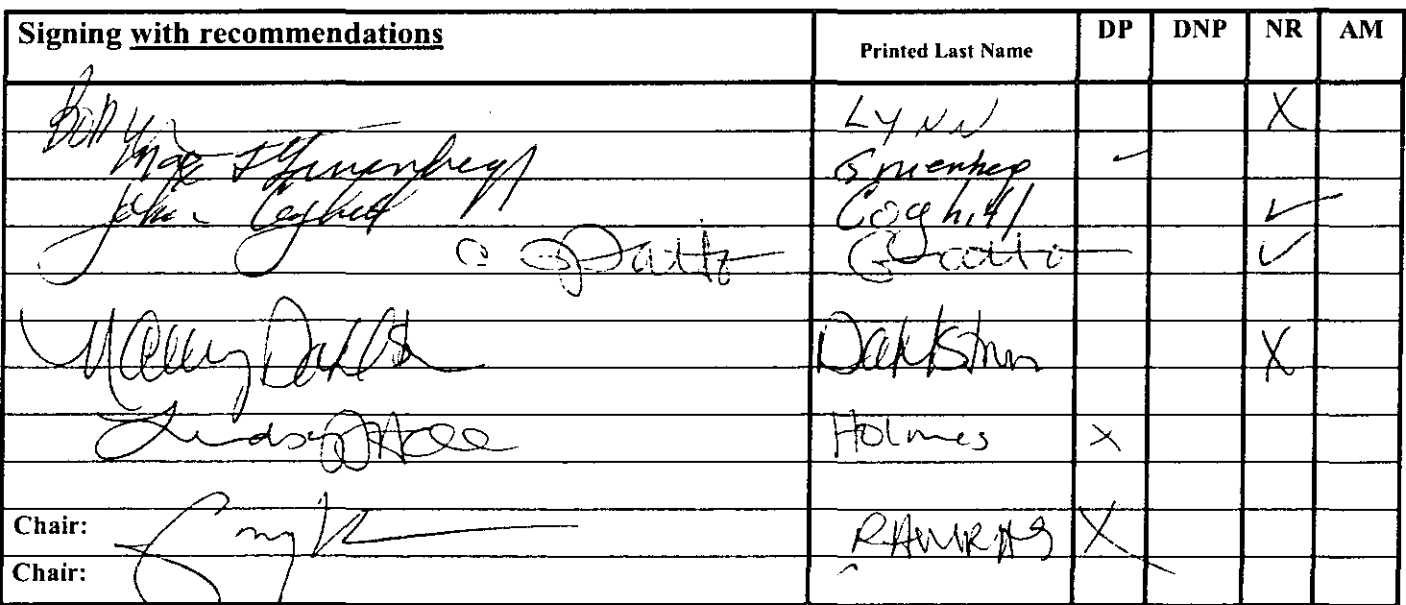 Signing with recommendations Printed Last Name DP DNP NR AM
Bob Lynn LYNN X
Gruenberg ✓
John Coghill Coghill ✓
Gatto Gatto ✓
Nancy Dahlstrom X
Lindsey Holmes X
Chair: RAMRAS X
Chair: